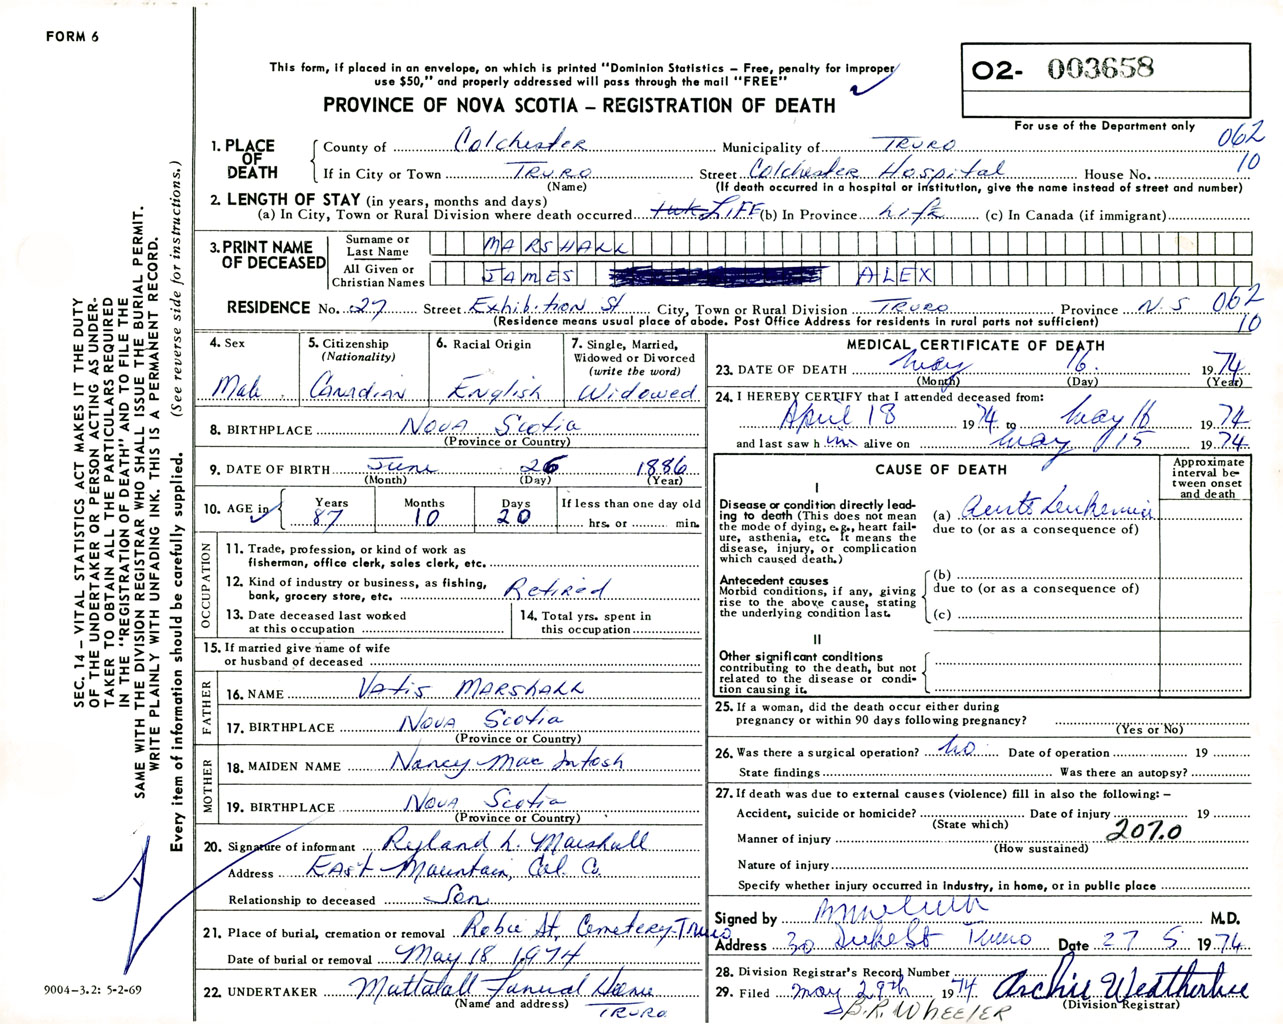 FORM 6
This form, if placed in an envelope, on which is printed "Dominion Statistics – Free, penalty for improper
use $50," and properly addressed will pass through the mail "FREE"
PROVINCE OF NOVA SCOTIA – REGISTRATION OF DEATH
O2- 003658
For use of the Department only
062
10
1. PLACE OF DEATH
County of Colchester Municipality of TRURO
If in City or Town TRURO Street Colchester Hospital House No.
(Name) (If death occurred in a hospital or institution, give the name instead of street and number)
2. LENGTH OF STAY (in years, months and days)
(a) In City, Town or Rural Division where death occurred LIFE (b) In Province Life (c) In Canada (if immigrant)
3. PRINT NAME OF DECEASED
Surname or Last Name MARSHALL
All Given or Christian Names JAMES ALEX
RESIDENCE No. 27 Street Exhibition St City, Town or Rural Division TRURO Province N.S 062
10
(Residence means usual place of abode. Post Office Address for residents in rural parts not sufficient)
4. Sex
Male
5. Citizenship
(Nationality)
Canadian
6. Racial Origin
English
7. Single, Married,
Widowed or Divorced
(write the word)
Widowed
8. BIRTHPLACE Nova Scotia
(Province or Country)
9. DATE OF BIRTH June 26 1886
(Month) (Day) (Year)
10. AGE in
Years Months Days
87 10 20
If less than one day old
hrs. or min.
OCCUPATION
11. Trade, profession, or kind of work as
fisherman, office clerk, sales clerk, etc.
12. Kind of industry or business, as fishing,
bank, grocery store, etc. Retired
13. Date deceased last worked
at this occupation
14. Total yrs. spent in
this occupation
15. If married give name of wife
or husband of deceased
FATHER
16. NAME Vatis MARSHALL
17. BIRTHPLACE Nova Scotia
(Province or Country)
MOTHER
18. MAIDEN NAME Nancy Mac Intosh
19. BIRTHPLACE Nova Scotia
(Province or Country)
20. Signature of informant Ryland L. Marshall
Address East Mountain, Col. Co.
Relationship to deceased Son
21. Place of burial, cremation or removal Robie St. Cemetery Truro
Date of burial or removal May 18 1974
22. UNDERTAKER Mattatall Funeral Home
(Name and address) TRURO
MEDICAL CERTIFICATE OF DEATH
23. DATE OF DEATH May 16. 1974
(Month) (Day) (Year)
24. I HEREBY CERTIFY that I attended deceased from:
April 18 1974 to May 16 1974
and last saw h im alive on May 15 1974
CAUSE OF DEATH
Approximate
interval be-
tween onset
and death
I
Disease or condition directly lead-
ing to death (This does not mean
the mode of dying, e.g., heart fail-
ure, asthenia, etc. It means the
disease, injury, or complication
which caused death.)
(a) Acute Leukemia
due to (or as a consequence of)
Antecedent causes
Morbid conditions, if any, giving
rise to the above cause, stating
the underlying condition last.
(b)
due to (or as a consequence of)
(c)
II
Other significant conditions
contributing to the death, but not
related to the disease or condi-
tion causing it.
25. If a woman, did the death occur either during
pregnancy or within 90 days following pregnancy?
(Yes or No)
26. Was there a surgical operation? No Date of operation 19
State findings Was there an autopsy?
27. If death was due to external causes (violence) fill in also the following: –
Accident, suicide or homicide? Date of injury 19
(State which)
207.0
Manner of injury
(How sustained)
Nature of injury
Specify whether injury occurred in industry, in home, or in public place
Signed by M.D.
Address 30 Duke St Truro Date 27 5 1974
28. Division Registrar's Record Number
29. Filed May 29th 1974 Archie Weatherbee
(Division Registrar)
B.R. WHEELER
SEC. 14 – VITAL STATISTICS ACT MAKES IT THE DUTY
OF THE UNDERTAKER OR PERSON ACTING AS UNDER-
TAKER TO OBTAIN ALL THE PARTICULARS REQUIRED
IN THE "REGISTRATION OF DEATH" AND TO FILE THE
SAME WITH THE DIVISION REGISTRAR WHO SHALL ISSUE THE BURIAL PERMIT.
WRITE PLAINLY WITH UNFADING INK. THIS IS A PERMANENT RECORD.
Every item of information should be carefully supplied. (See reverse side for instructions.)
9004-3.2: 5-2-69